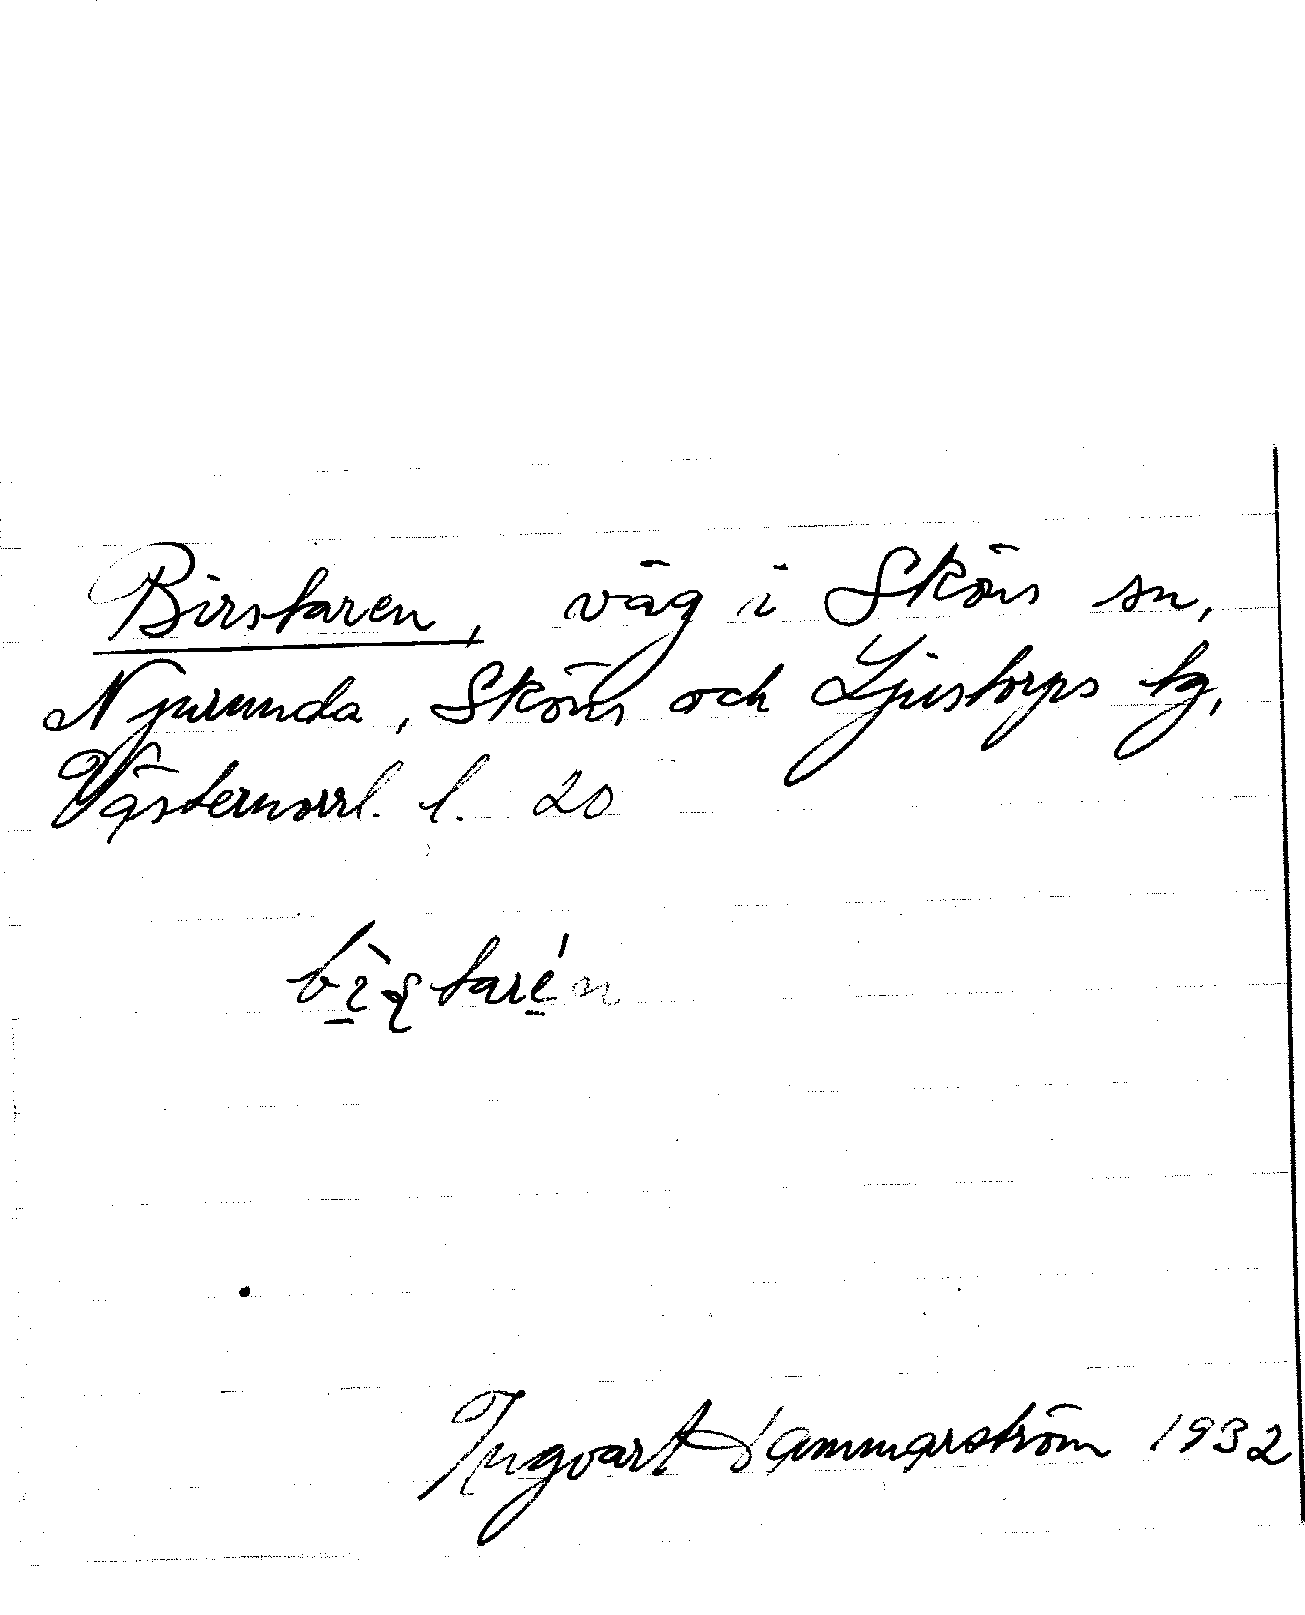 Birstaren, väg i Sköns sn,
Njurunda, Sköns och Ljustorps tg,
Västernorrl. l. 20
Ingvart Hammarström 1932